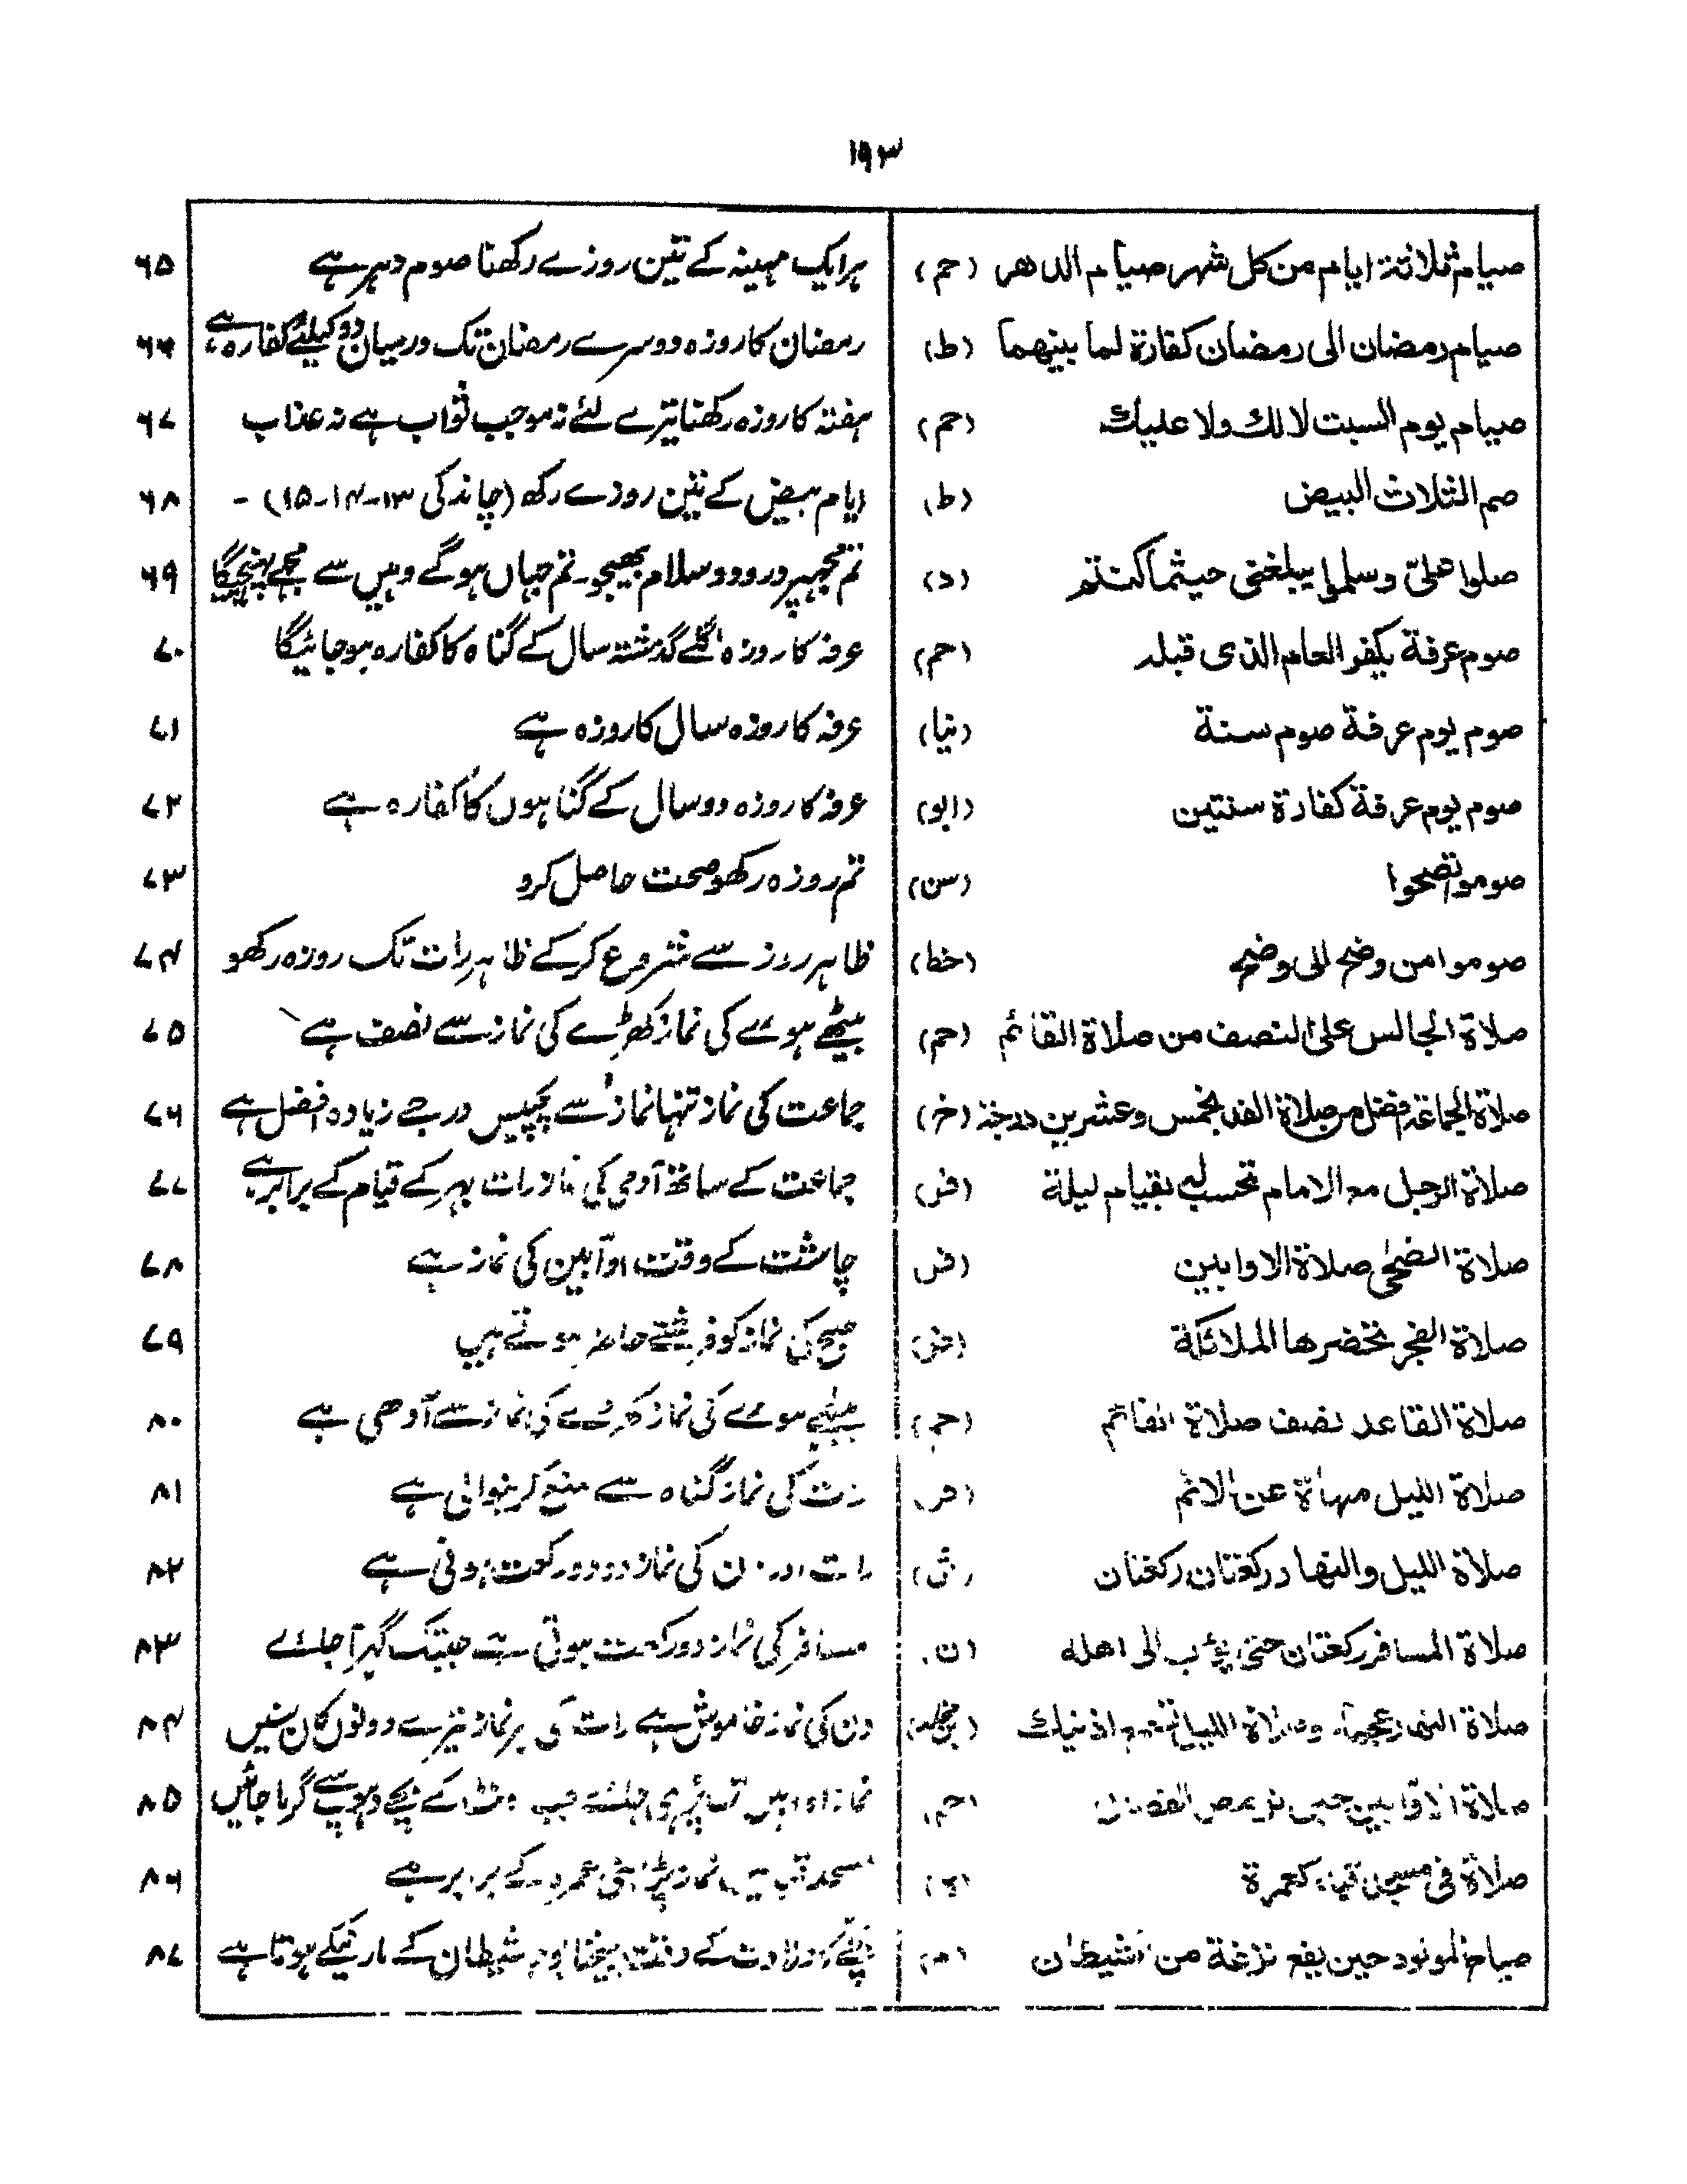 ۱۹۳
صیام ثلاثة ایام من کل شهر صیام الدهر (حم) ہر ایک مہینہ کے تین روزے رکھنا صوم دہر ہے ۶۵
صیام رمضان الی رمضان کفارة لما بینهما (ط) رمضان کا روزہ دوسرے رمضان تک درمیان دو کیلئے کفارہ ہے ۶۶
صیام یوم السبت لا لك ولا علیك (حم) ہفتہ کا روزہ رکھنا تیرے لئے نہ موجب ثواب ہے نہ عذاب ۶۷
صم الثلاث البیض (ط) ایام بیض کے تین روزے رکھ (چاند کی ۱۳-۱۴-۱۵) - ۶۸
صلوا علیّ وسلموا یبلغنی حیثما کنتم (د) تم مجھپر درود و سلام بھیجو۔ تم جہاں ہوگے وہیں سے مجھے پہنچیگا ۶۹
صوم عرفة یکفر العام الذی قبله (حم) عرفہ کا روزہ اگلے گذشتہ سال کے گناہ کا کفارہ ہو جائیگا ۷۰
صوم یوم عرفة صوم سنة (نیا) عرفہ کا روزہ سال کا روزہ ہے ۷۱
صوم یوم عرفة کفارة سنتین (ابو) عرفہ کا روزہ دو سال کے گناہوں کا کفارہ ہے ۷۲
صوموا تصحوا (سن) تم روزہ رکھو صحت حاصل کرو ۷۳
صوموا من وضح الی وضح (خط) ظاہر روز سے شروع کرکے ظاہر رات تک روزہ رکھو ۷۴
صلاة الجالس علی النصف من صلاة القائم (حم) بیٹھے ہوے کی نماز کھڑے کی نماز سے نصف ہے ۷۵
صلاة الجماعة افضل من صلاة الفذ بخمس وعشرین درجة (خ) جماعت کی نماز تنہا نماز سے پچیس درجے زیادہ افضل ہے ۷۶
صلاة الرجل مع الامام تحسب له بقیام لیلة (فر) جماعت کے ساتھ آدمی کی نماز رات بہر کے قیام کے برابر ہے ۷۷
صلاة الضحی صلاة الاوابین (فر) چاشت کے وقت اوّابین کی نماز ہے ۷۸
صلاة الفجر تحضرها الملائکة صبح کی نماز کو فرشتے حاضر ہوتے ہیں ۷۹
صلاة القاعد نصف صلاة القائم (حم) بیٹھے ہوے کی نماز کھڑے کی نماز سے آدھی ہے ۸۰
صلاة اللیل منهاة عن الاثم (فر) رات کی نماز گناہ سے منع کرنیوالی ہے ۸۱
صلاة اللیل والنهار رکعتان رکعتان رات اور دن کی نماز دو دو رکعت ہوتی ہے ۸۲
صلاة المسافر رکعتان حتی یؤب الی اهله (ن) مسافر کی نماز دو رکعت ہوتی ہے جبتک گہر آ جائے ۸۳
صلاة النهار عجماء وصلاة اللیل اذنیك دن کی نماز خاموش ہے رات کی ہر نماز تیرے دونوں کان سنیں ۸۴
صلاة الاوّابین حین ترمض الفصال (حم) نماز اوابین تب پڑہی جائے جب اونٹ کے بچے دہوپ سے گرما جائیں ۸۵
صلاة فی مسجد قباء کعمرة مسجد قبا میں نماز پڑہنی عمرہ کے برابر ہے ۸۶
صیاح المولود حین یقع نزغة من الشیطان (م) بچے کا ولادت کے وقت چیخنا شیطان کے مارنیکے ہوتا ہے ۸۷